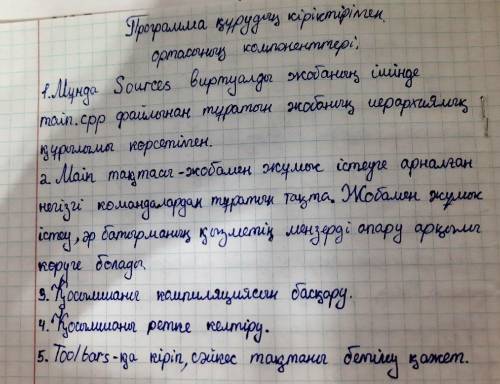 Программа құрудың кіріктірілген
ортасының компоненттері:
1. Мұнда Sources виртуалды жобаның ішінде
main.cpp файлынан тұратын жобаның иерархиялық
құрылымы көрсетілген.
2. Main тақтасы - жобамен жұмыс істеуге арналған
негізгі командалардан тұратын тақта. Жобамен жұмыс
істеу, әр батырманың қызметін меңзерді апару арқылы
көруге болады.
3. Қосымшаны компиляциясын басқару.
4. Қосымшаны ретке келтіру.
5. Toolbars-қа кіріп, сәйкес тақтаны белгілеу қажет.